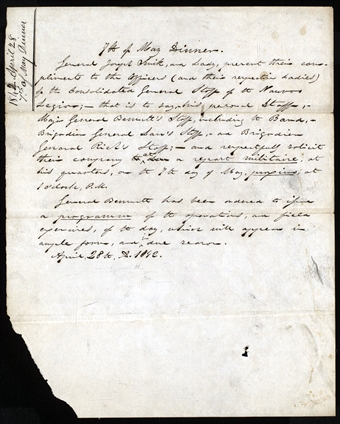 1842 April 28
7th of May Dinner
7th of May Dinner.
General Joseph Smith, and Lady, present their com-
pliments to the Officers (and their respective Ladies)
of the Consolidated General Staff of the Nauvoo
Legion;— that is to say, his personal Staff,—
Major General Bennett's Staff, including the Band,—
Brigadier General Law's Staff, and Brigadier
General Rich's Staff;— and respectfully solicit
their company at a repast militaire, at
his quarters, on the 7th day of May, at
1 o'clock, P.M.
General Bennett has been ordered to issue
a programme of the operations, and field
exercises, of the day, which will appear in
ample form, and in due season.
April, 28th, 1842.